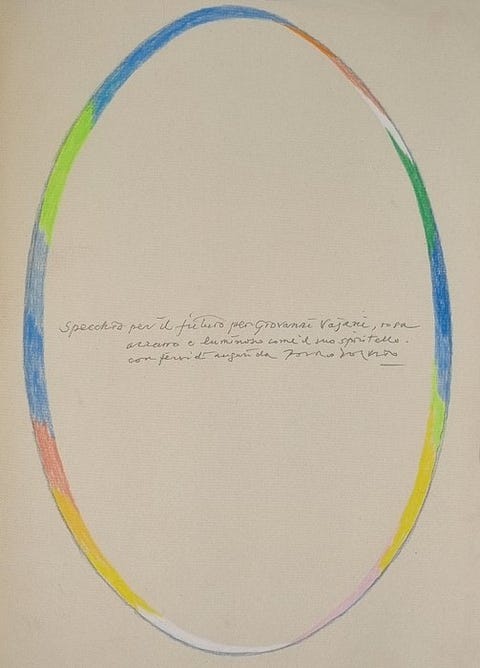 Specchio per il futuro per Giovanni Vajani, rosa
azzurro e luminoso come il suo spiritello.
con fervidi auguri da